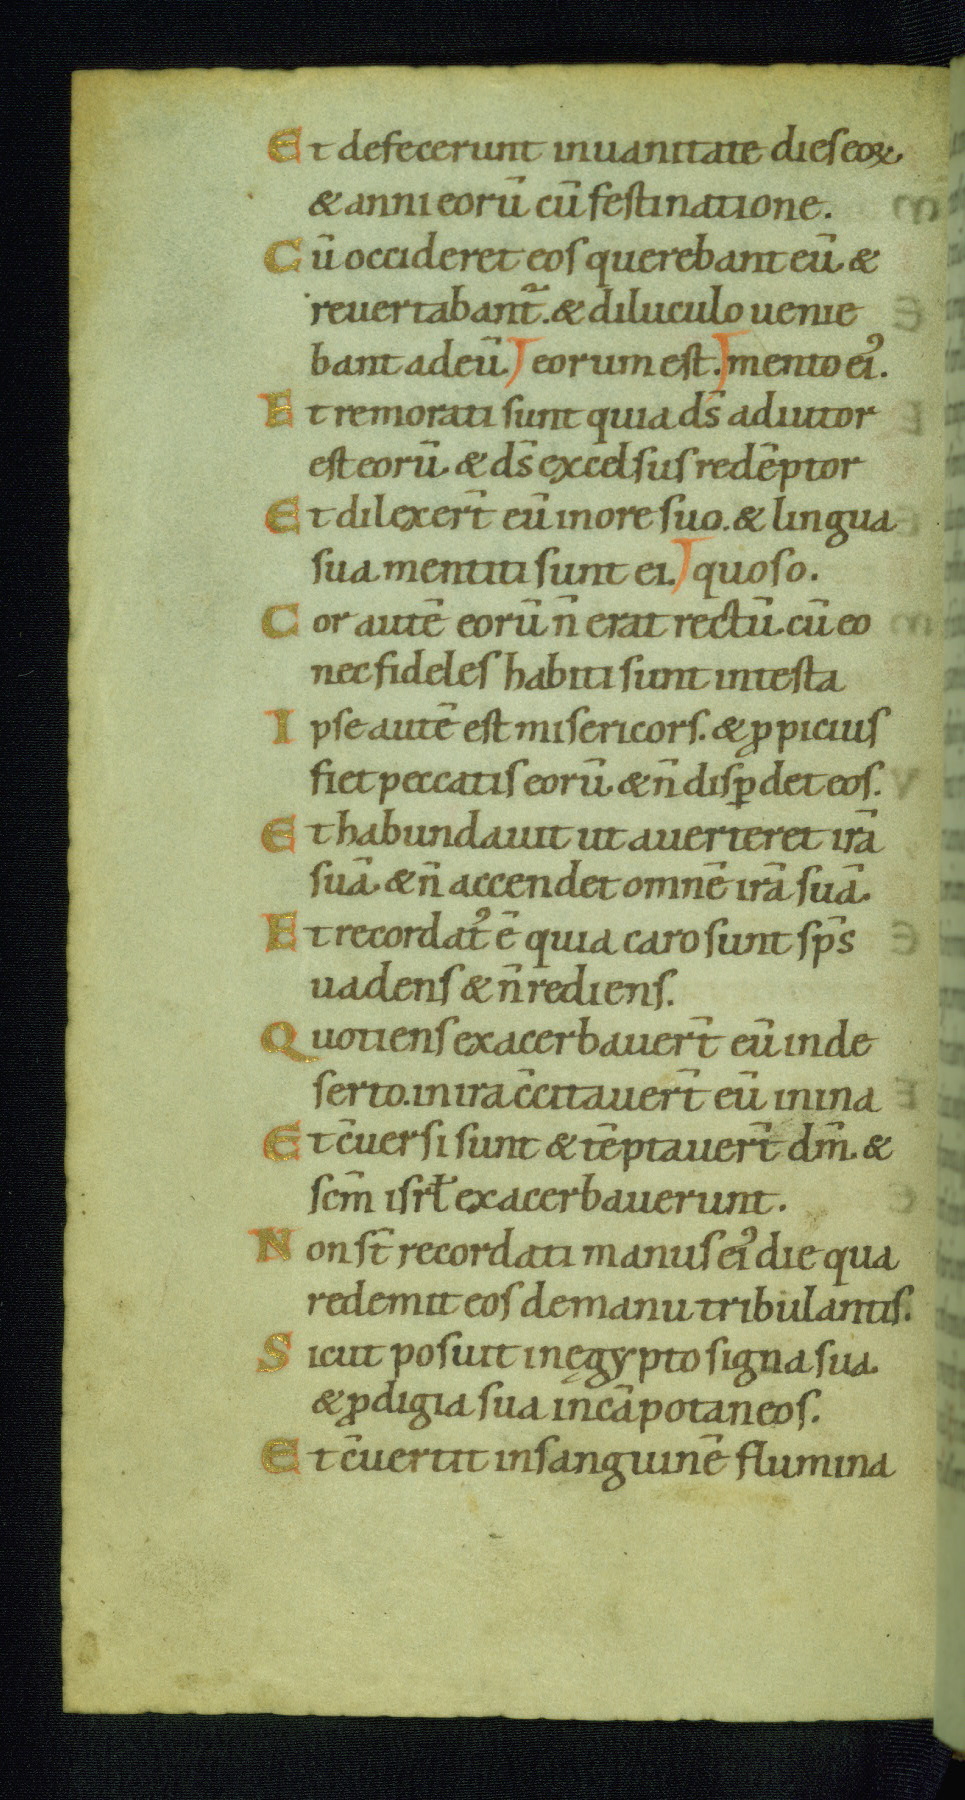 Et defecerunt in uanitate dies eoꝝ
& anni eorū cū festinatione.
Cū occideret eos querebant eū. &
reuertabant᷑. & diluculo uenie
bant ad eū. eorum est. mento eiꝰ.
Et remorati sunt quia ds̄ adiutor
est eorū. & ds̄ excelsus redēptor
Et dilexer̄t eū in ore suo. & lingua
sua mentiti sunt ei. quoso.
Cor autē eorū n̄ erat rectū. cū eo
nec fideles habiti sunt in testa
Ipse autē est misericors. & ꝓpicius
fiet peccatis eorū. & n̄ disꝑdet eos.
Et habundauit ut auerteret irā
suā. & n̄ accendet omnē irā suā.
Et recordatꝰ ē quia caro sunt sp̄s
uadens & n̄ rediens.
Quotiens exacerbauer̄t eū in de
serto. in ira c̄citauer̄t eū in ina
Et c̄uersi sunt & tēptauer̄t dm̄. &
scm̄ isrł exacerbauerunt.
Non st̄ recordati manus eiꝰ die qua
redemit eos de manu tribulantis.
Sicut posuit in ęgypto signa sua.
& ꝓdigia sua in cāpo taneos.
Et c̄uertit in sanguinē flumina